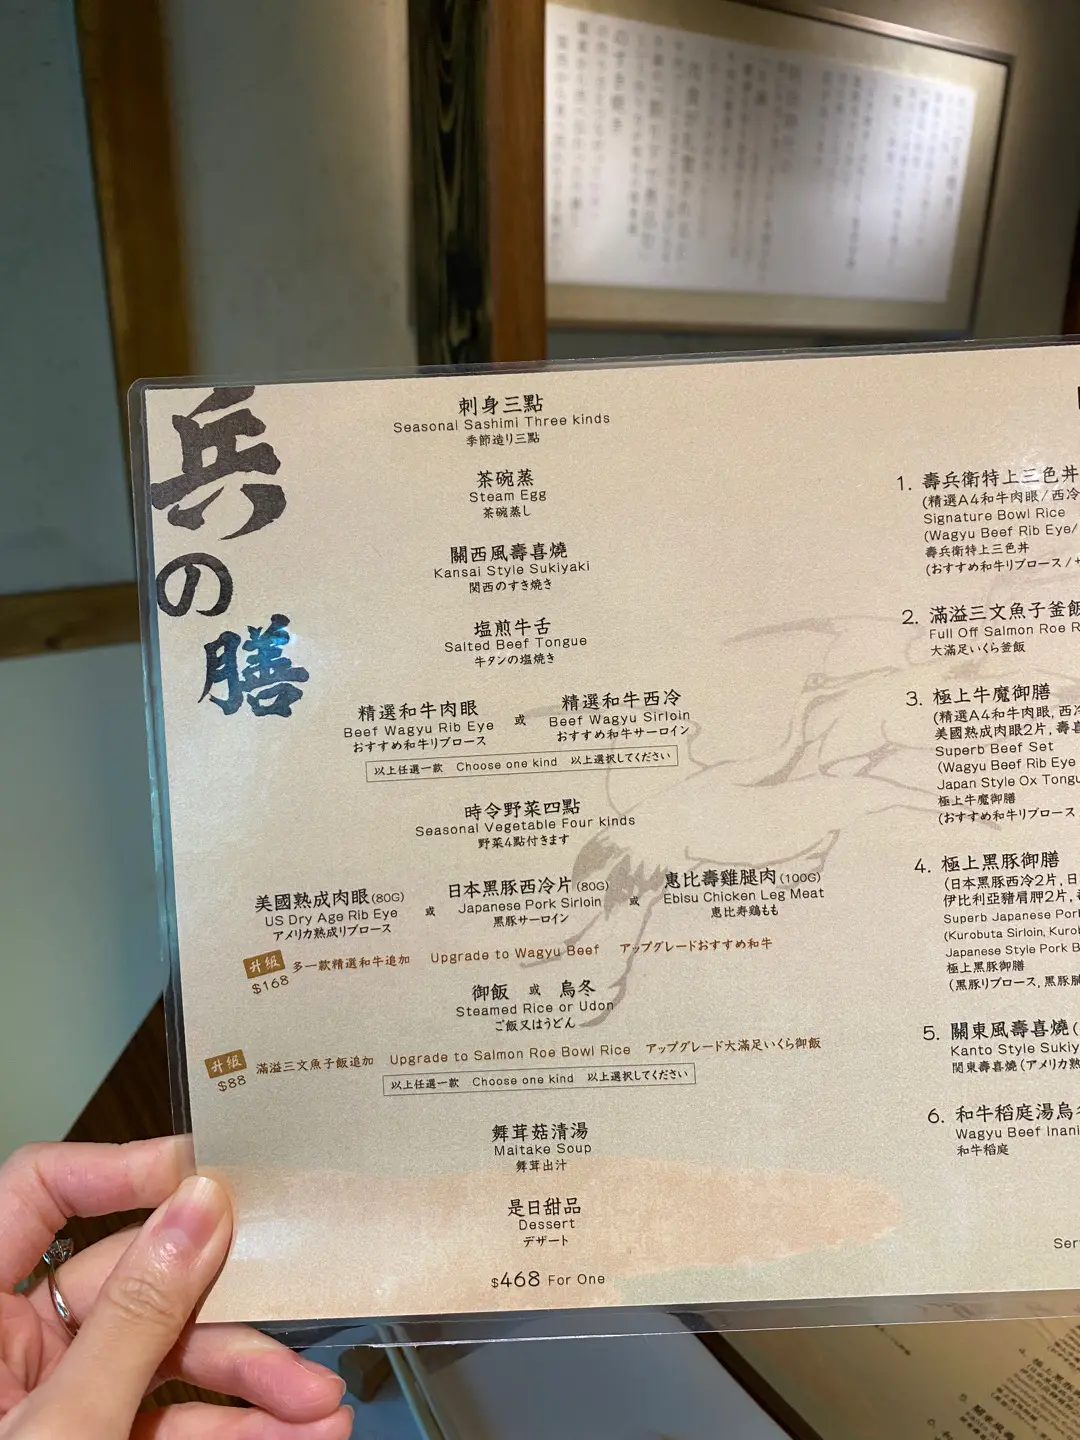 兵の膳
刺身三點
Seasonal Sashimi Three kinds
季節造り三點
茶碗蒸
Steam Egg
茶碗蒸し
關西風壽喜燒
Kansai Style Sukiyaki
関西のすき焼き
塩煎牛舌
Salted Beef Tongue
牛タンの塩焼き
精選和牛肉眼 或 精選和牛西冷
Beef Wagyu Rib Eye Beef Wagyu Sirloin
おすすめ和牛リブロース おすすめ和牛サーロイン
以上任選一款 Choose one kind 以上選択してください
時令野菜四點
Seasonal Vegetable Four kinds
野菜4點付きます
美國熟成肉眼(80G) 或 日本黑豚西冷片(80G) 或 恵比壽雞腿肉(100G)
US Dry Age Rib Eye Japanese Pork Sirloin Ebisu Chicken Leg Meat
アメリカ熟成リブロース 黒豚サーロイン 恵比寿鶏もも
升級 多一款精選和牛追加 Upgrade to Wagyu Beef アップグレードおすすめ和牛
$168
御飯 或 烏冬
Steamed Rice or Udon
ご飯又はうどん
升級 滿溢三文魚子飯追加 Upgrade to Salmon Roe Bowl Rice アップグレード大滿足いくら御飯
$88
以上任選一款 Choose one kind 以上選択してください
舞茸菇清湯
Maitake Soup
舞茸出汁
是日甜品
Dessert
デザート
$468 For One
1. 壽兵衛特上三色丼
(精選A4和牛肉眼/西冷
Signature Bowl Rice
(Wagyu Beef Rib Eye/
壽兵衛特上三色丼
(おすすめ和牛リブロース/
2. 滿溢三文魚子釜飯
Full Off Salmon Roe R
大滿足いくら釜飯
3. 極上牛魔御膳
(精選A4和牛肉眼, 西冷
美國熟成肉眼2片, 壽喜
Superb Beef Set
(Wagyu Beef Rib Eye
Japan Style Ox Tongu
極上牛魔御膳
(おすすめ和牛リブロース
4. 極上黑豚御膳
(日本黑豚西冷2片, 日
伊比利亞豬肩胛2片,
Superb Japanese Pork
(Kurobuta Sirloin, Kurob
Japanese Style Pork B
極上黑豚御膳
(黒豚リブロース, 黒豚
5. 關東風壽喜燒(
Kanto Style Sukiy
関東壽喜燒(アメリカ熟
6. 和牛稻庭湯烏
Wagyu Beef Inani
和牛稻庭
Ser